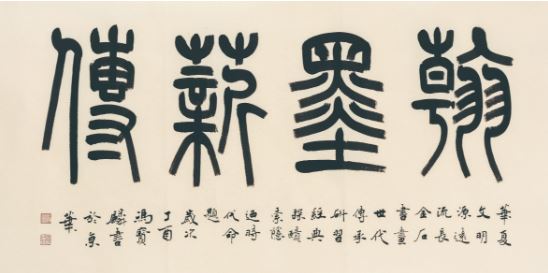 翰墨薪傳
華夏
文明
源遠
流長
金石
書畫
世代
傳承
研習
經典
探賾
索隱
時
代命
題
歲次
丁酉
馮寶
麟書
於京
華